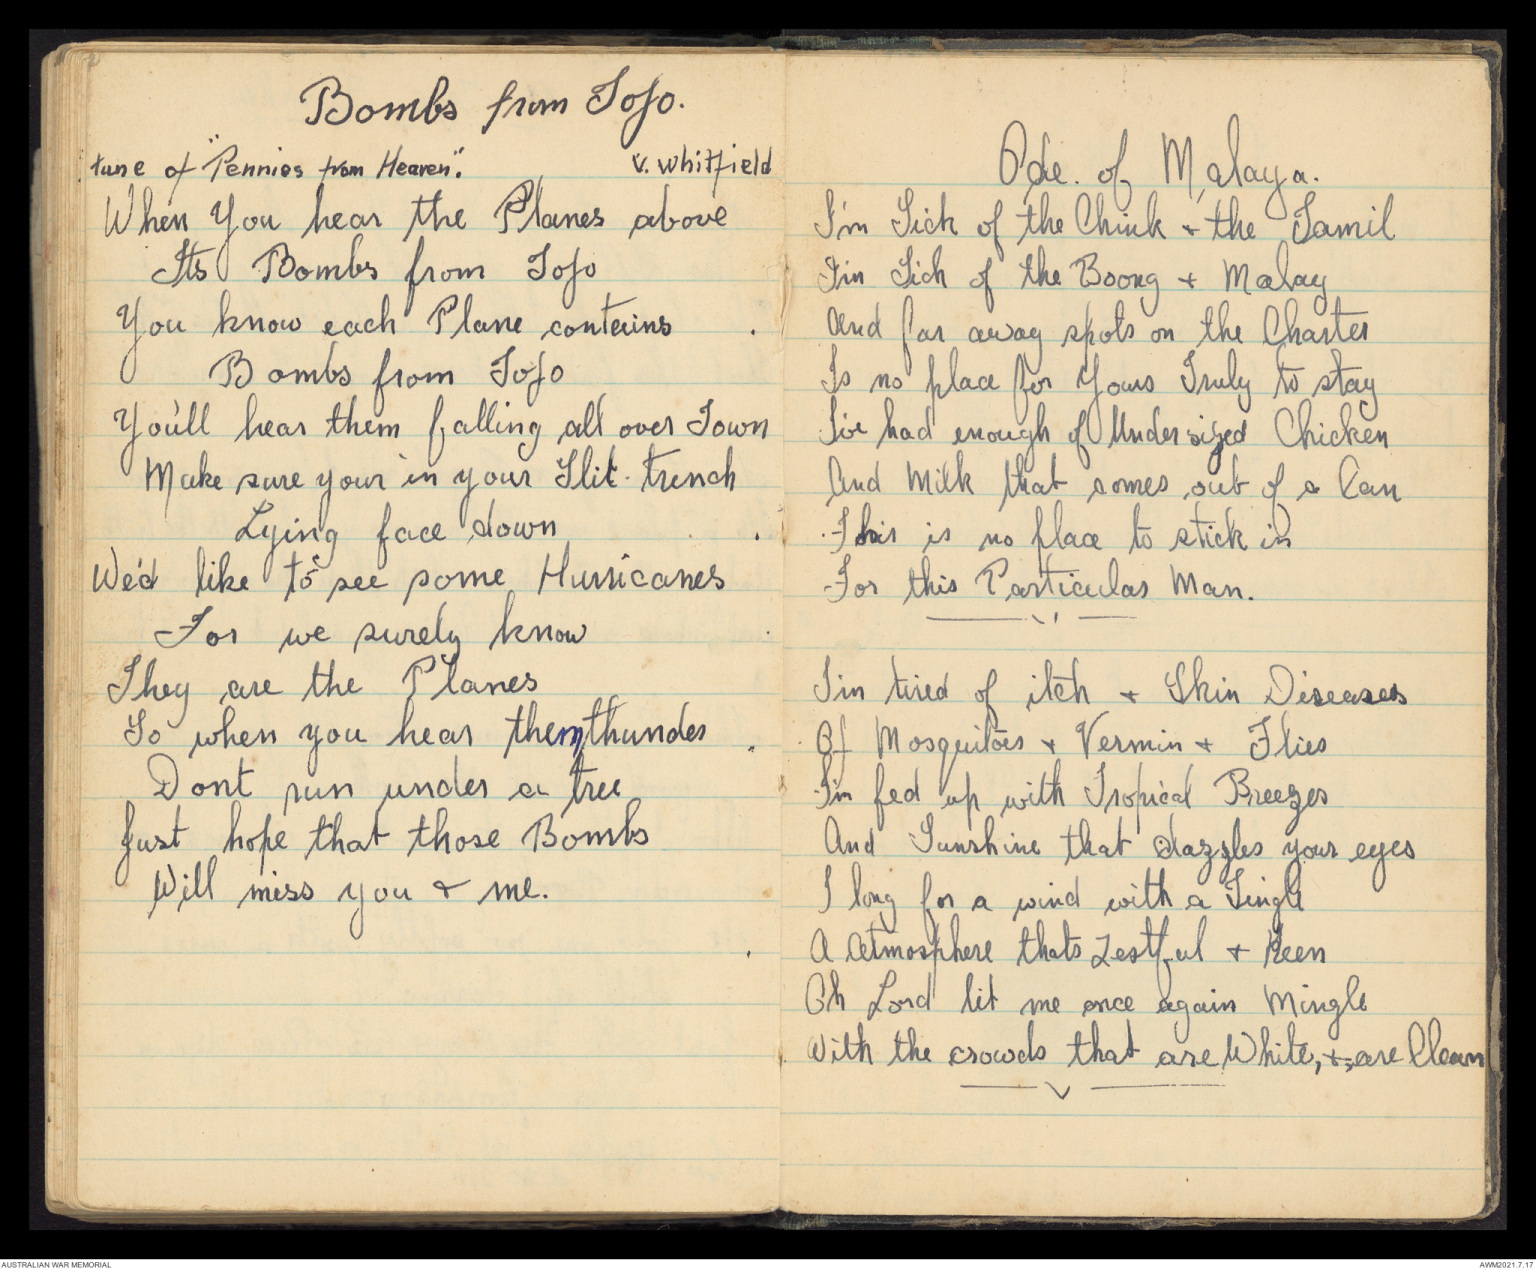 Bombs from Tojo.
tune of "Pennies from Heaven". V. Whitfield
When You hear the Planes above
Its Bombs from Tojo
You know each Plane contains
Bombs from Tojo
You'll hear them falling all over Town
Make sure your in your Slit-trench
Lying face down
We'd like to see some Hurricanes
For we surely know
They are the Planes
So when you hear them thunder
Dont run under a tree
Just hope that those Bombs
Will miss you & me.
Ode. of Malaya.
I'm Sick of the Chink & the Tamil
I'm Sick of the Boong & Malay
And far away spots on the Charter
Is no place for Yours Truly to stay
I've had enough of Undersized Chicken
And Milk that comes out of a Can
This is no place to stick in
For this Particular Man.
I'm tired of itch & Skin Diseases
Of Mosquitoes & Vermin & Flies
I'm fed up with Tropical Breezes
And Sunshine that dazzles your eyes
I long for a wind with a Tingle
A Atmosphere thats Zestful & Keen
Oh Lord let me once again Mingle
With the crowds that are White, & are Clean
AUSTRALIAN WAR MEMORIAL
AWM2021.7.17